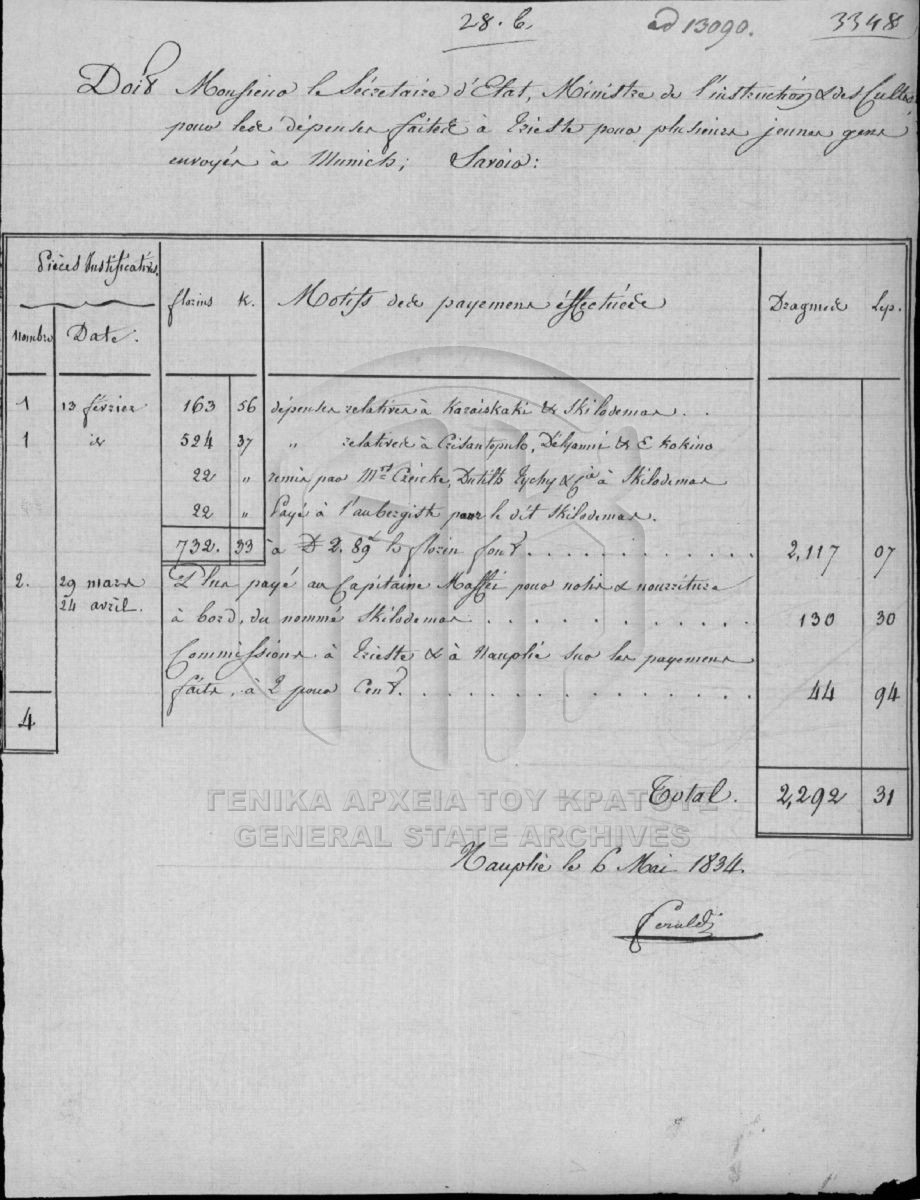 28. b. ad 13090. 3348
Doit Monsieur le Sécretaire d'Etat, Ministre de l'instruction & des Cultes
pour les dépenses faites à Trieste pour plusieurs jeunes gens
envoyés à Munich; Savoir:
Pièces Justificatives. florins K. Motifs des payemens éffectuées Dragmes Lep.
Nombre Date.
1 13 février 163 56 dépenses relatives à Karaiskaki & Skilodemas . .
1 id 524 37 " relatives à Crisantopulo, Delyanni & E kokino
22 " remis par Mrs. Czeicke, Dutilh Tychy & Cie à Skilodemas
22 " Payé à l'aubergiste pour le dit Skilodemas.
732. 33 à D 2. 89 le florin font . . . . . . . . . . . 2,117 07
2. 29 mars Plus payé au Capitaine Maffei pour nolis & nourriture
24 avril. à bord, du nommé Skilodemas . . . . . . . . . . . 130 30
Commissions à Trieste & à Nauplie sur les payemens
faits, à 2 pour Cent. . . . . . . . . . . . . 44 94
4
Total. 2,292 31
ΓΕΝΙΚΑ ΑΡΧΕΙΑ ΤΟΥ ΚΡΑΤΟΥΣ
GENERAL STATE ARCHIVES
Nauplie le 6 Mai 1834.
Feraldi